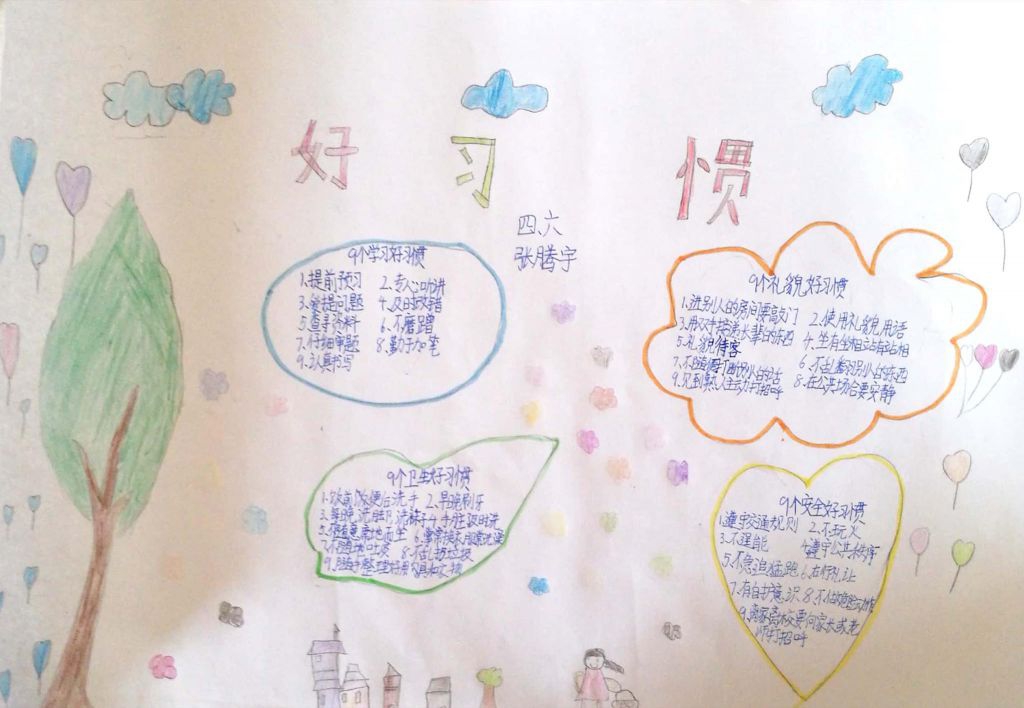 好习惯
四、六
张腾宇
9个学习好习惯
1、提前预习 2、专心听讲
3、爱提问题 4、及时改错
5、查寻资料 6、不磨蹭
7、仔细审题 8、勤于加笔
9、认真书写
9个礼貌好习惯
1、进别人的房间要敲门 2、使用礼貌用语
3、用双手接流长辈的东西 4、坐有坐相站有站相
5、礼貌待客 6、不乱翻别人的东西
7、不随便打断别人的话
8、在公共场合要安静
9、见到熟人主动打招呼
9个卫生好习惯
1、饭前便后洗手 2、早晚刷牙
3、每晚洗脚洗袜子 4、
5、不随意席地而坐 6、
7、不随地吐痰 8、不乱扔垃圾
9、
9个安全好习惯
1、遵守交通规则 2、不玩火
3、不逞能 4、遵守公共秩序
5、不急追猛跑 6、右行礼让
7、有自护意识 8、不做危险动作
9、离家离校要向家长或老
师打招呼